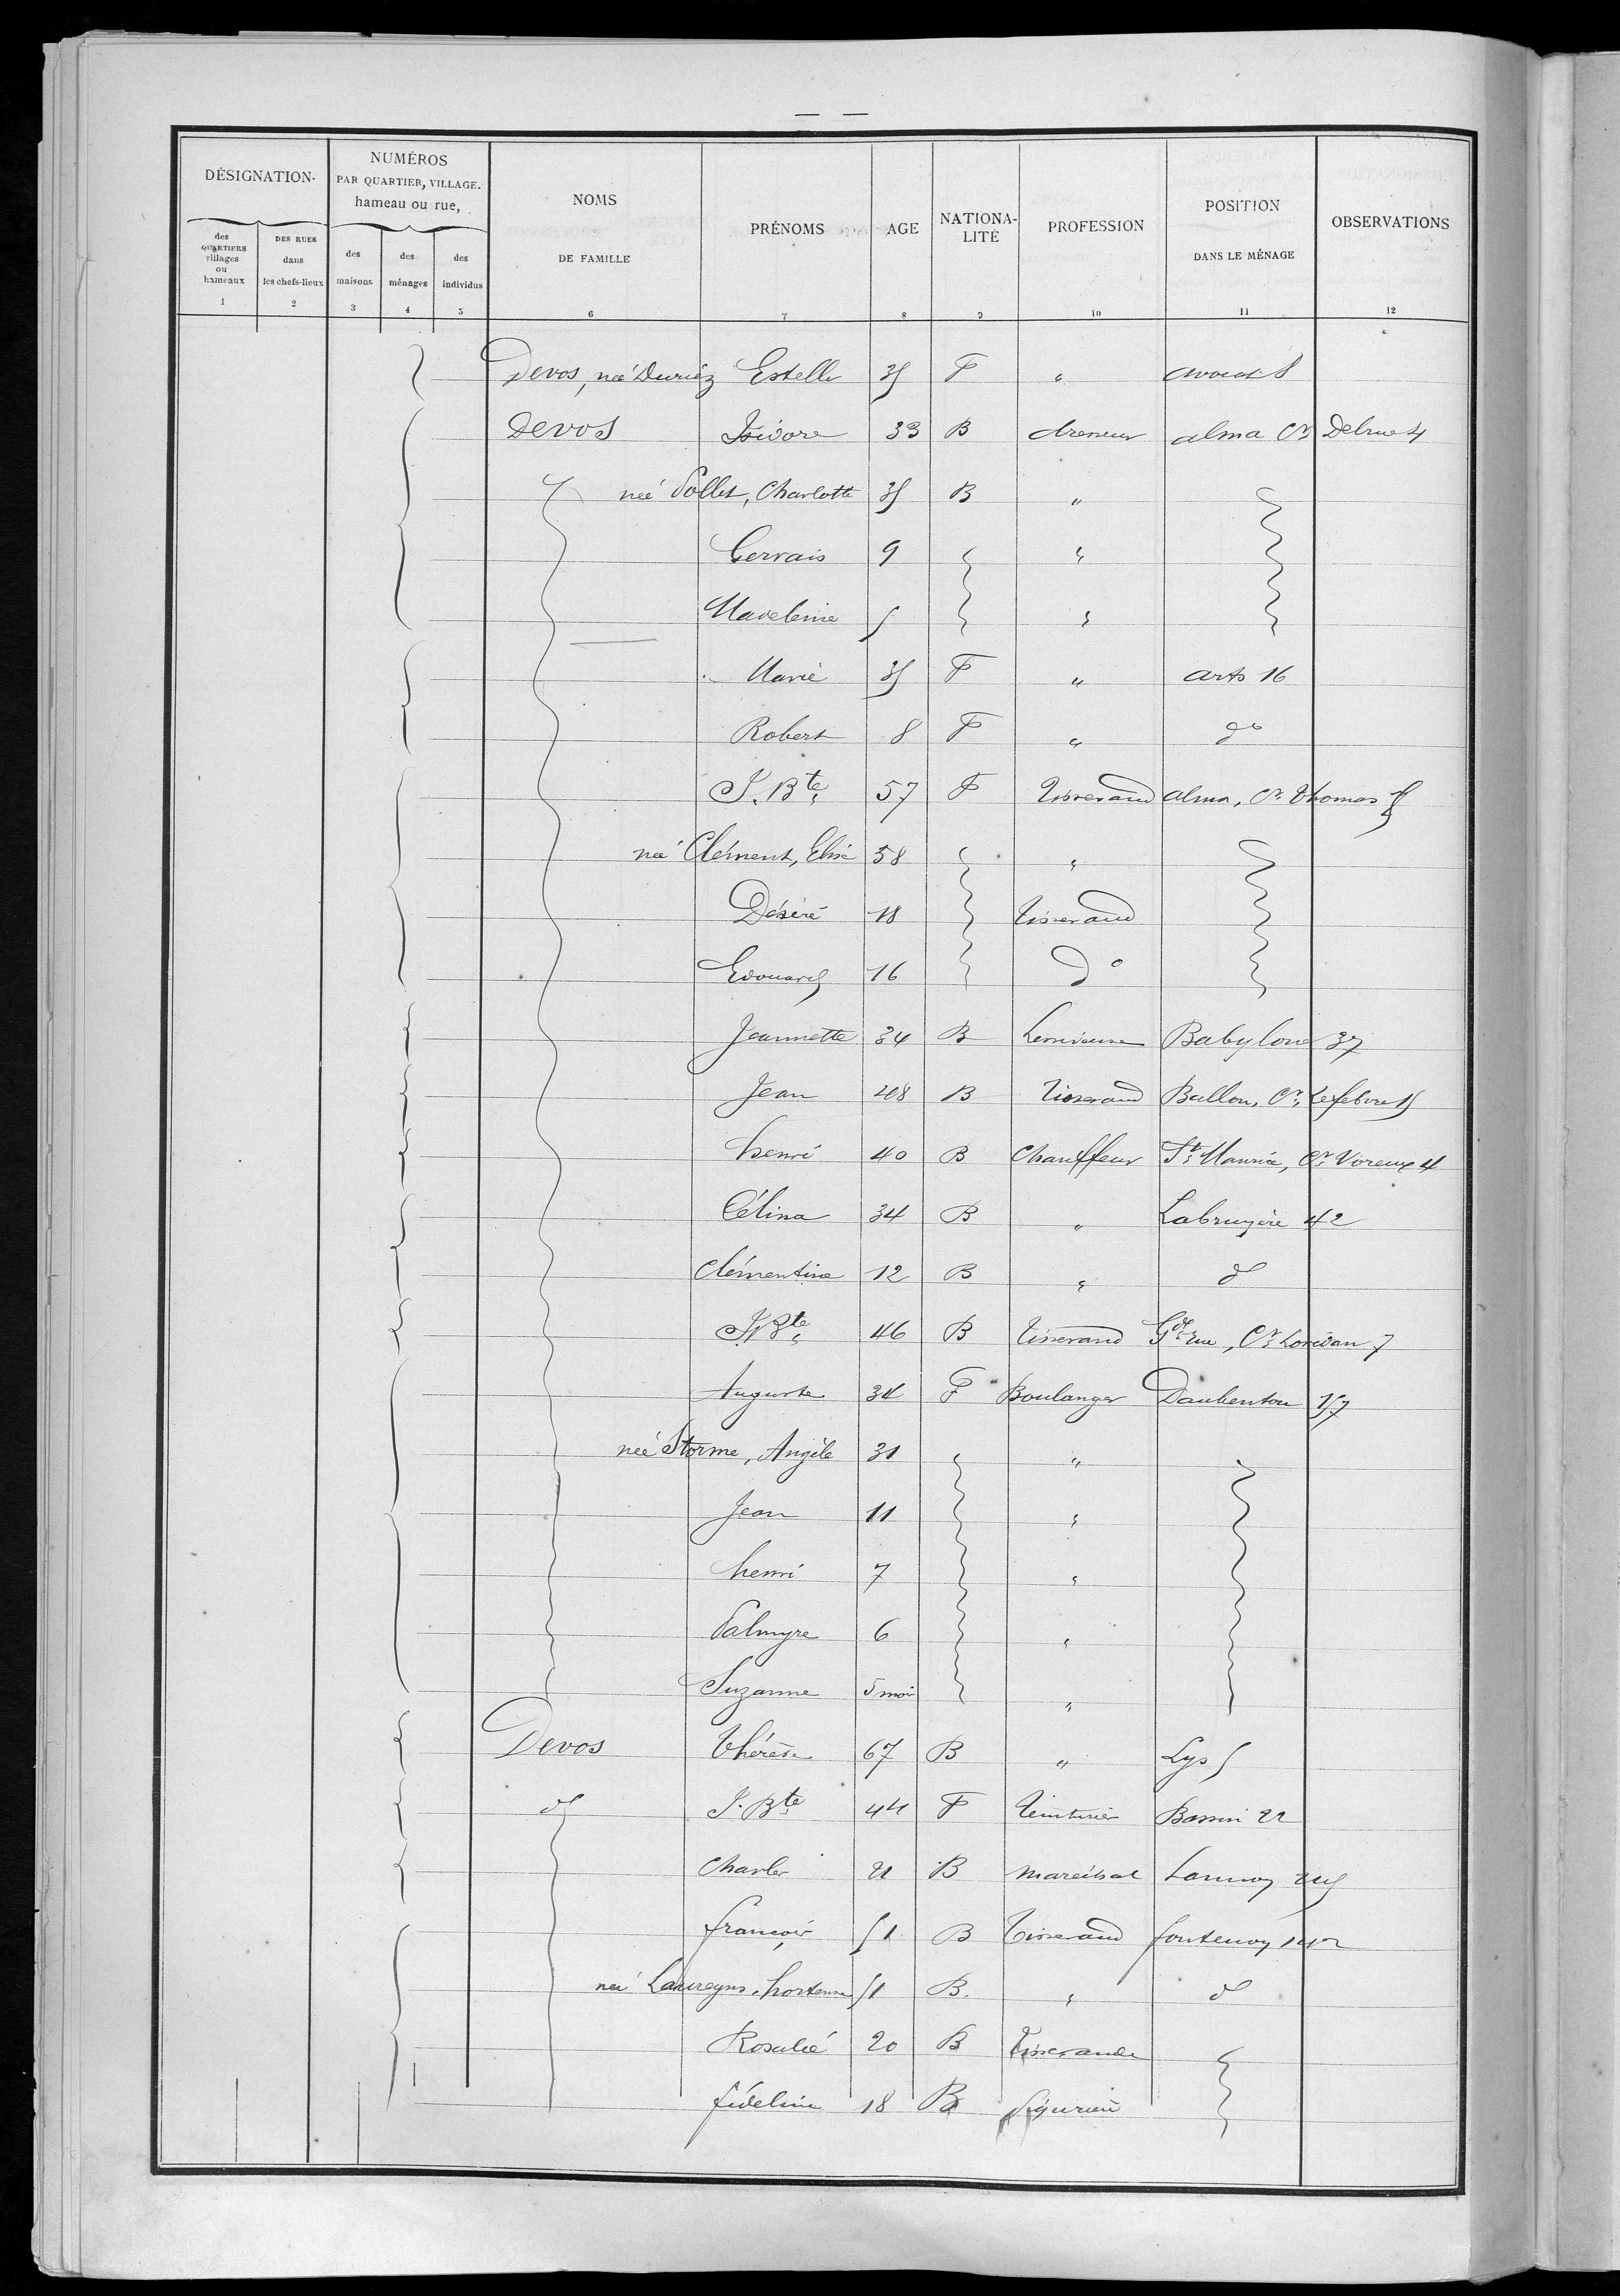 DÉSIGNATION.
NUMÉROS
PAR QUARTIER, VILLAGE.
hameau ou rue,
NOMS
DE FAMILLE
PRÉNOMS
AGE
NATIONA-
LITÉ
PROFESSION
POSITION
DANS LE MÉNAGE
OBSERVATIONS
des
QUARTIERS
villages
ou
hameaux
DES RUES
dans
les chefs-lieux
des
maisons
des
ménages
des
individus
1 2 3 4 5 6 7 8 9 10 11 12
Devos, née Duriez Estelle 35 F "
Devos Isidore 33 B alma Cr. Delrue 4
née Pollet, Charlotte 35 B "
Gervais 9 "
Madeleine 5 "
Marie 35 F " arts 16
Robert 8 F " do
J. Bte 57 F Tisserand alma, Cr. Thomas
née Clément, Elise 58 "
Désiré 18 Tisserand
Edouard 16 do
Jeannette 34 B Babylone 37
Jean 48 B Tisserand Ballon, Cr. Lefebvre 15
henri 40 B Chauffeur St. Maurice, Cr. Voreux 4
Célina 34 B " Labruyère 42
Clémentine 12 B " do
J. Bte 46 B Tisserand Gde rue, Cr. Loridan 7
Auguste 34 F Boulanger Daubenton 157
née Storme, Angèle 31 "
Jean 11 "
henri 7 "
Palmyre 6 "
Suzanne 5 mois "
Devos Thérèse 67 B " Lys 5
do J. Bte 44 F Teinturier Bassin 22
Charles 21 B maréchal Lannoy
françois 51 B Tisserand fontenoy 142
née Laureyns, hortense 51 B. " do
Rosalie 20 B Tisserande
fideline 18 B